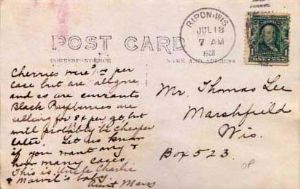 RIPON, WIS.
JUL 18
7 AM
POST CARD
CORRESPONDENCE
NAME AND ADDRESS
Cherries were per
case but are all gone
and so are currants
Black Raspberries are
selling for per qt, but
will probably be cheaper
later. Let us know
if you want any &
how many cases
This is Uncle Charlie
baby
Aunt Mary
Mr. Thomas Lee
Marshfield
Wis.
Box 523.